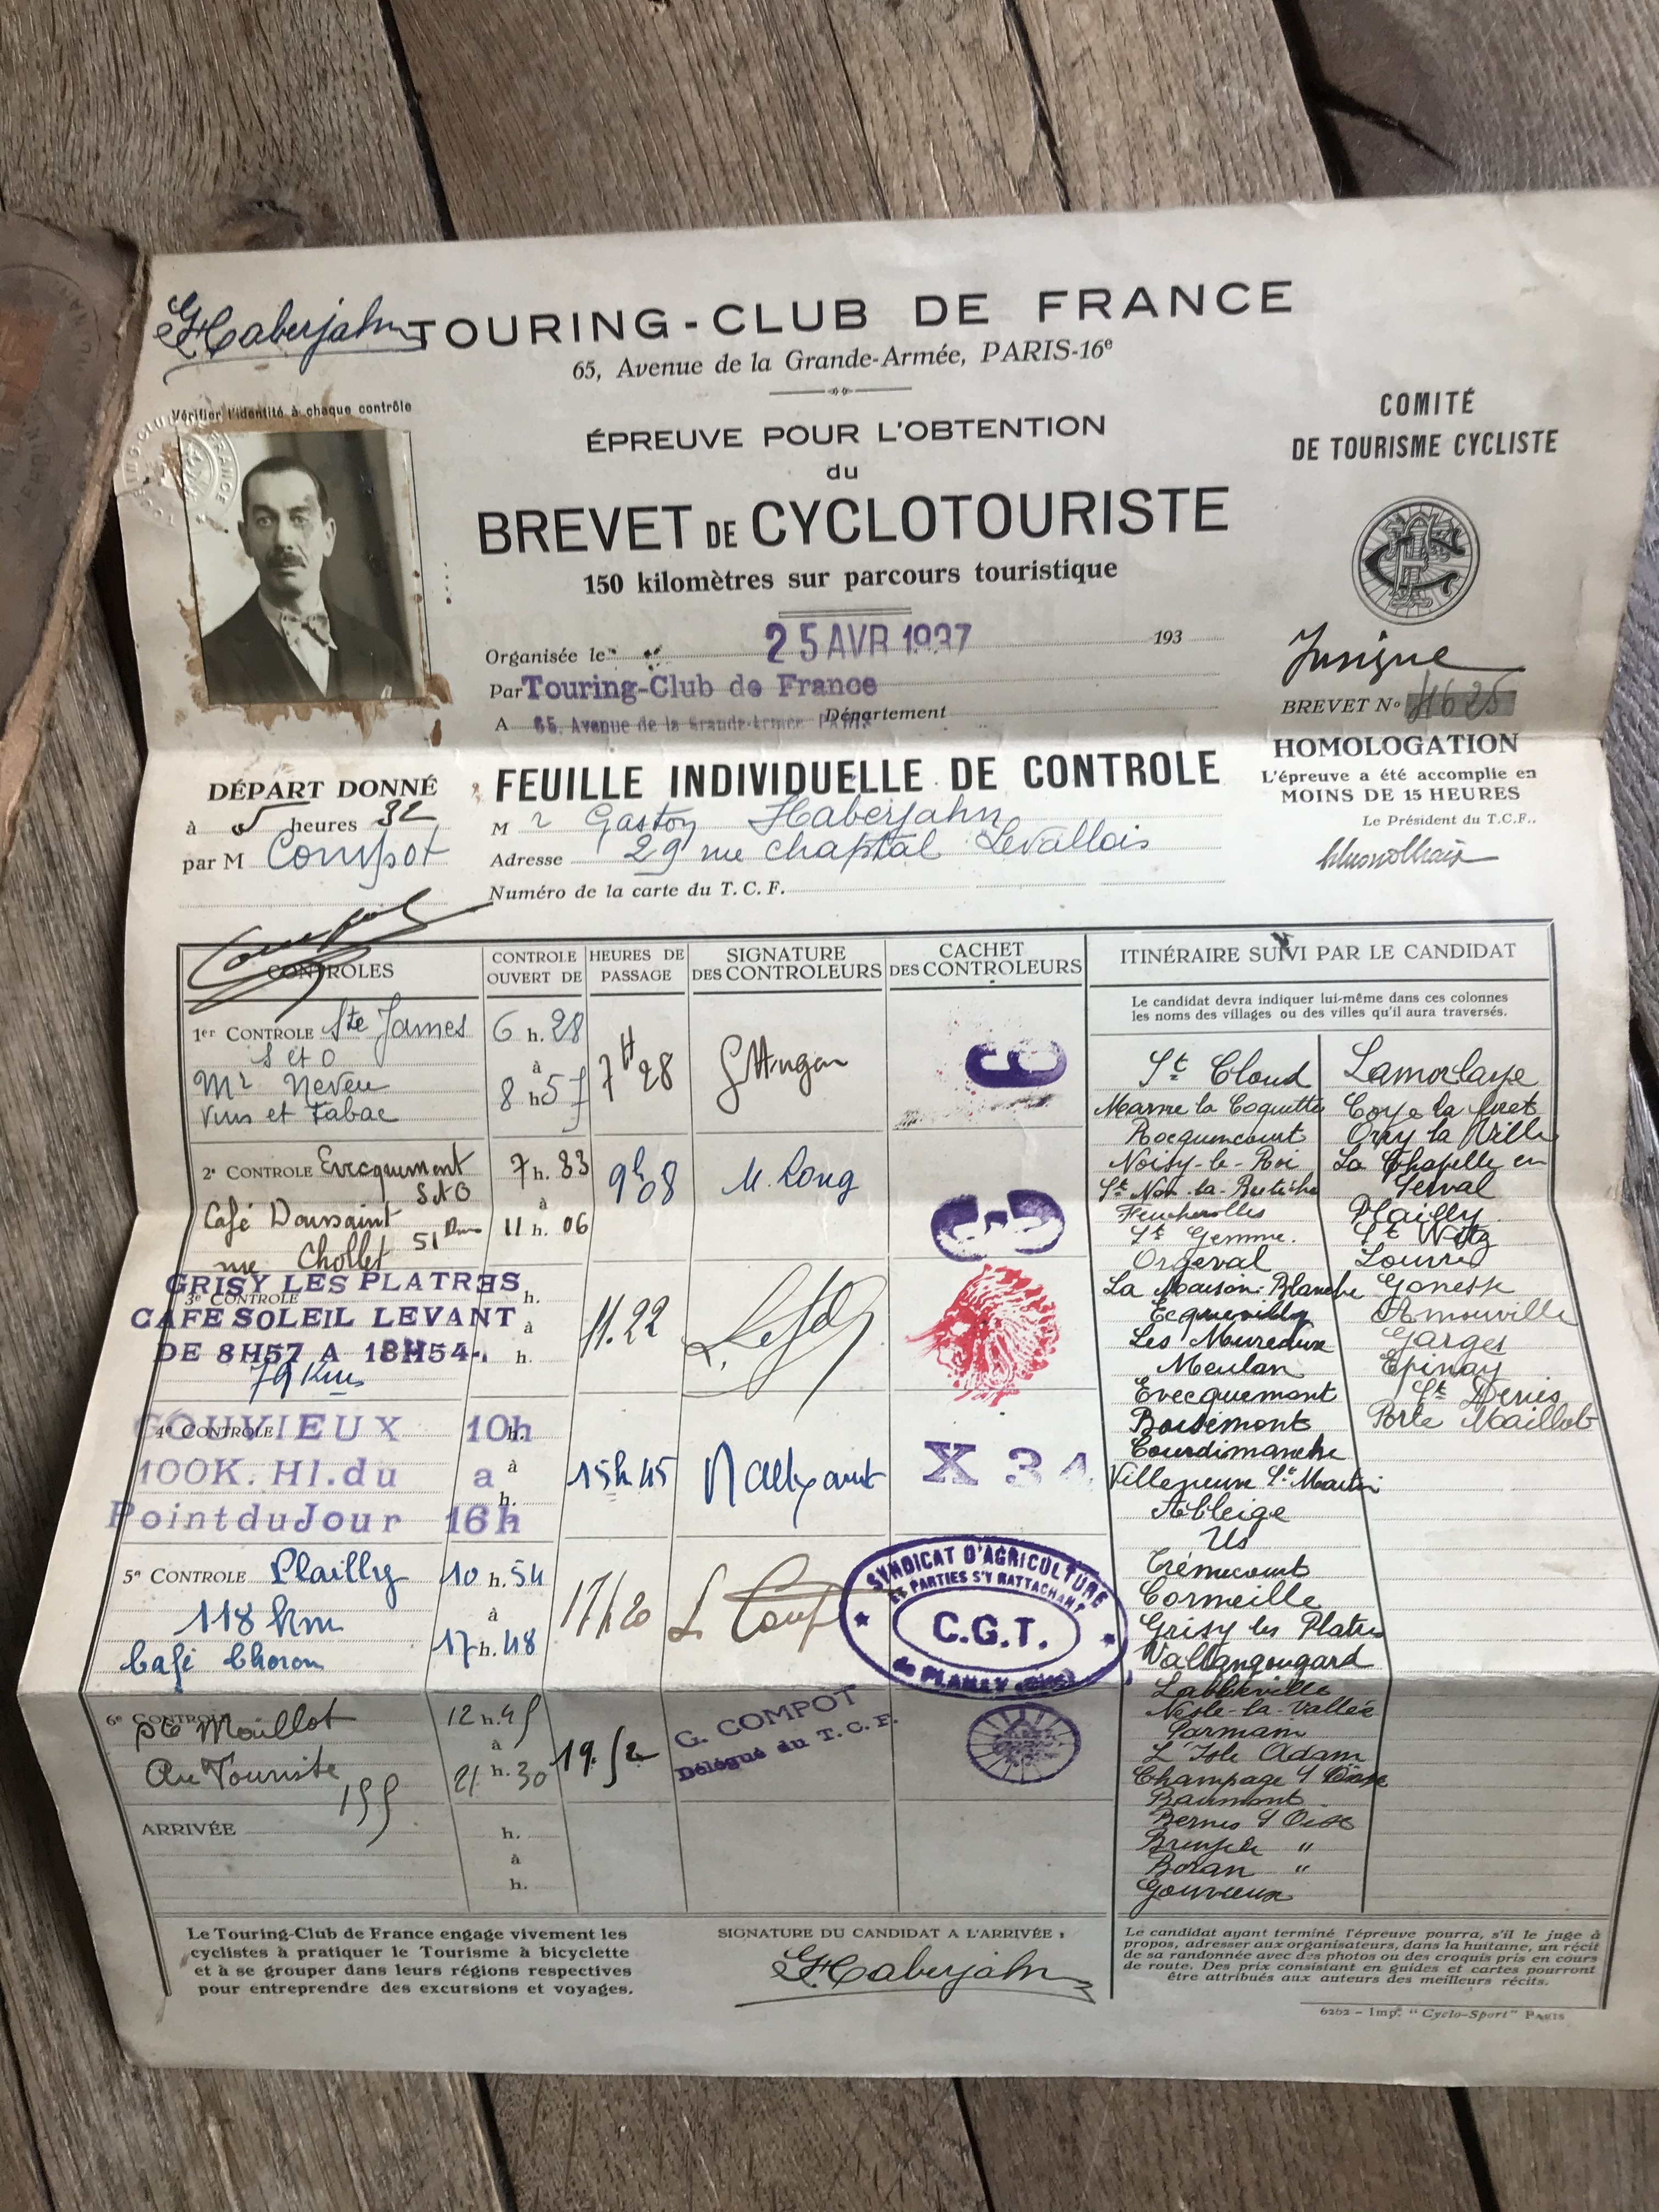 GHaberjahn
TOURING-CLUB DE FRANCE
65, Avenue de la Grande-Armée, PARIS-16e
Vérifier l'identité à chaque contrôle
ÉPREUVE POUR L'OBTENTION
du
BREVET DE CYCLOTOURISTE
150 kilomètres sur parcours touristique
COMITÉ
DE TOURISME CYCLISTE
Organisée le 25 AVR 1937 193
Par Touring-Club de France
A 65, Avenue de la Grande-Armée PARIS Département
Insigne
BREVET No 4625
HOMOLOGATION
L'épreuve a été accomplie en
MOINS DE 15 HEURES
Le Président du T.C.F.,
DÉPART DONNÉ
à 5 heures 32
par M Compot
FEUILLE INDIVIDUELLE DE CONTROLE
M r Gaston Haberjahn
Adresse 29 rue Chaptal Levallois
Numéro de la carte du T. C. F.
CONTRÔLES
CONTROLE OUVERT DE
HEURES DE PASSAGE
SIGNATURE DES CONTROLEURS
CACHET DES CONTROLEURS
ITINÉRAIRE SUIVI PAR LE CANDIDAT
Le candidat devra indiquer lui-même dans ces colonnes
les noms des villages ou des villes qu'il aura traversés.
1er CONTROLE Ste James
S et O
Mr Neveu
Vins et Tabac
6 h. 28
à
8 h 57
7H28
2e CONTROLE Evecquemont
S et O
Café Doussaint 51 Km
rue Chollet
7 h. 33
à
11 h. 06
9h08
M. Long
3e CONTROLE
GRISY LES PLATRES
CAFE SOLEIL LEVANT
DE 8H57 A 13H54.
79 Kms
h.
à
h.
11.22
4e CONTROLE
GOUVIEUX
100K. Hl. du
Point du Jour
10h
h.
a à
h.
16h
15h45
X 34
5e CONTROLE Plailly
118 km
Café Choron
10 h. 54
à
17 h. 48
17h20
SYNDICAT D'AGRICULTURE
ET PARTIES S'Y RATTACHANT
C.G.T.
de PLAILLY (Oise)
6e CONTROLE
Pte Maillot
Au Touriste
155
12 h. 45
à
21 h. 30
19.52
G. COMPOT
Délégué du T. C. F.
ARRIVÉE
h.
à
h.
St Cloud
Marne la Coquette
Rocquencourt
Noisy-le-Roi
St Nom-la-Bretèche
Feucherolles
Ste Gemme.
Orgeval
La Maison-Blanche
Ecquevilly
Les Mureaux
Meulan
Evecquemont
Boisemont
Courdimanche
Villeneuve St Martin
Ableige
Us
Trémecourt
Cormeille
Grisy les Platres
Vallangougard
Labbeville
Nesle-la-Vallée
Parmain
L'Isle Adam
Champage s/ Oise
Beaumont
Bernes s/ Oise
Bruyère "
Boran "
Gouvieux
Lamorlaye
Coye la foret
Orry la Ville
La Chapelle en
Serval
Plailly
St Witz
Louvres
Gonesse
Arnouville
Garges
Epinay
St Denis
Porte Maillot
Le Touring-Club de France engage vivement les
cyclistes à pratiquer le Tourisme à bicyclette
et à se grouper dans leurs régions respectives
pour entreprendre des excursions et voyages.
SIGNATURE DU CANDIDAT A L'ARRIVÉE :
GHaberjahn
Le candidat ayant terminé l'épreuve pourra, s'il le juge à
propos, adresser aux organisateurs, dans la huitaine, un récit
de sa randonnée avec des photos ou des croquis pris en cours
de route. Des prix consistant en guides et cartes pourront
être attribués aux auteurs des meilleurs récits.
6262 - Imp. "Cyclo-Sport" PARIS